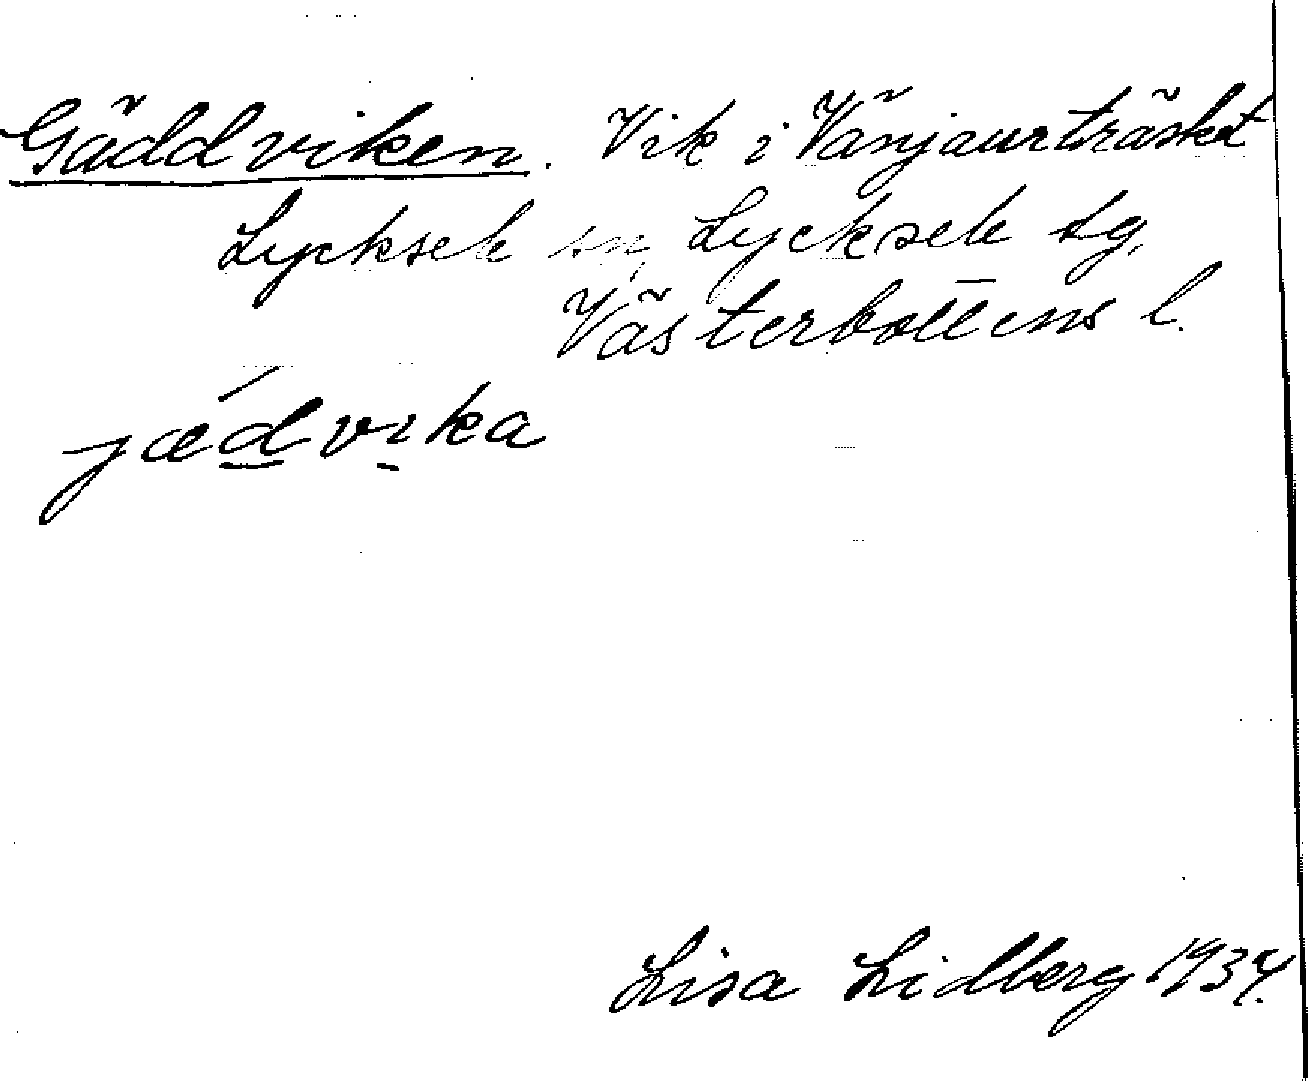 Gäddviken. Vik i Vänjaurträsket
Lycksele sn, Lycksele lg,
Västerbottens l.
jǽdvika
Lisa Lidberg 1934.